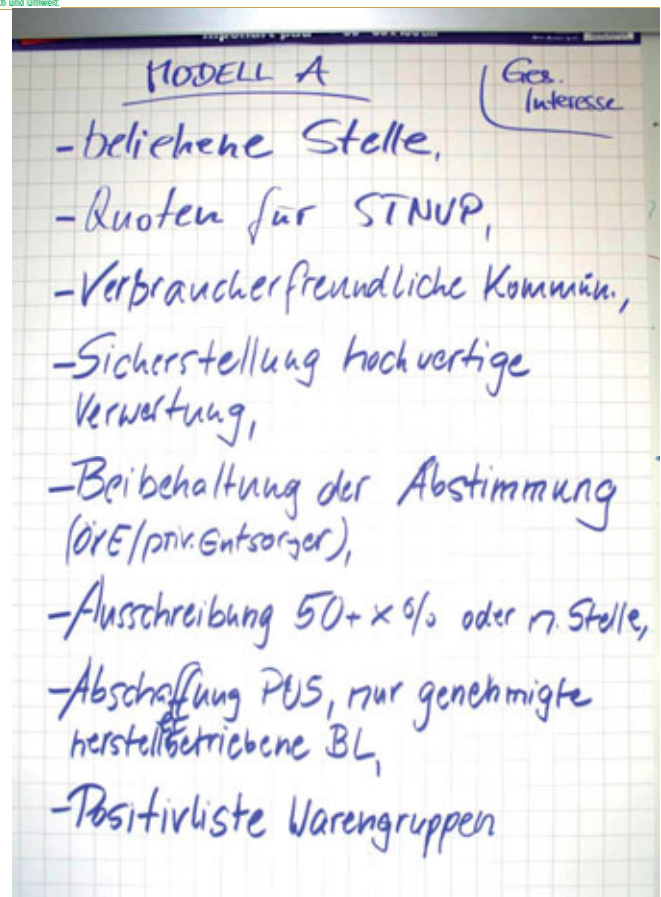 MODELL A
Ges.
Interesse
- beliehene Stelle,
- Quoten für STNVP,
- Verbraucherfreundliche Kommun.,
- Sicherstellung hochwertige
Verwertung,
- Beibehaltung der Abstimmung
(ÖrE/priv. Entsorger),
- Ausschreibung 50+x% oder n. Stelle,
- Abschaffung PUS, nur genehmigte
herstellerbetriebene BL,
- Positivliste Warengruppen